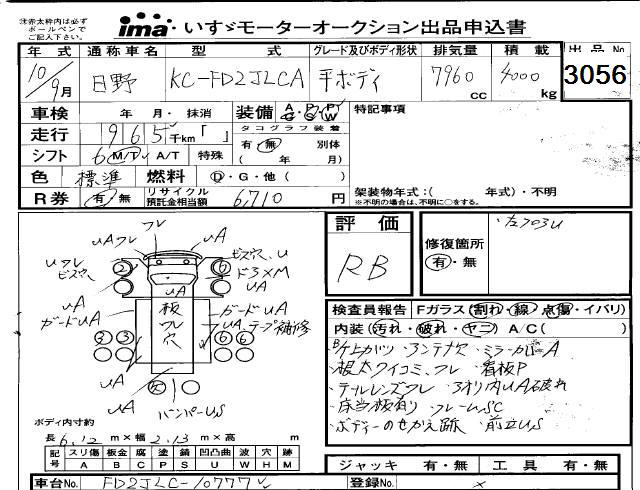 注赤太枠内は必ず
ボールペンで
ご記入下さい。
ima いすゞモーターオークション出品申込書
年式 通称車名 型式 グレード及びボディ形状 排気量 積載 出品No
10/9月 日野 KC-FD2JLCA 平ボディ 7960cc 4000kg 3056
車検 年 月・抹消 装備 A/C・P/S・P/W 特記事項
走行 965千km「 」 タコグラフ装着
有・無 別体
( 年 月)
シフト 6 M/T A/T 特殊
色 標準 燃料 D・G・他( )
架装物年式:( 年式)・不明
※不明の場合は、不明に○をする。
R券 有・無 リサイクル預託金相当額 6,710円
評価
RB
修復箇所
有・無
フレ
UAフレ UA
Uフレ
ビスウ ビスウ、U
ド3×M
UA UA
UA 板フレ穴
ガードUA ガードUA
UA テープ補修
UA UA
バンパーUS
検査員報告 Fガラス(割れ・線・点傷・イバリ)
内装(汚れ・破れ・ヤニ) A/C( )
アンテナ穴
・根太クイコミ、フレ 看板P
・テールレンズフレ
・床当板有り フレームSC
・ボデーのせかえ跡 前立US
ボディ内寸約
長6.12m×幅2.13m×高 m
記号 スリ傷 板金 腐 塗 錆 凹凸曲 波 穴 跡
A B C P S U W H M
ジャッキ 有・無 工具 有・無
車台No. FD2JLC-10777 登録No. ×